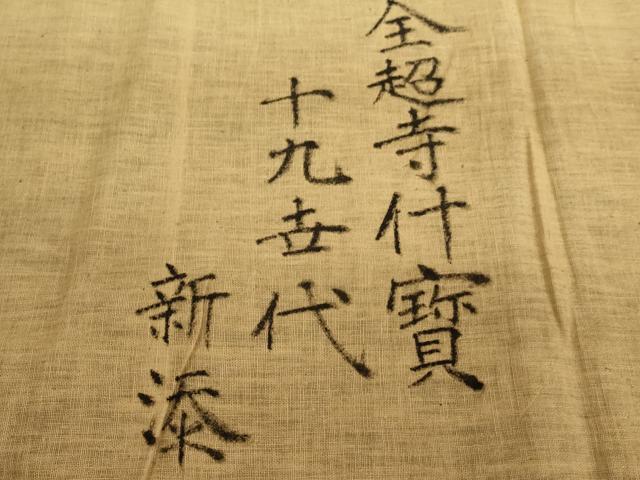 全超寺什寶
十九世代
新添